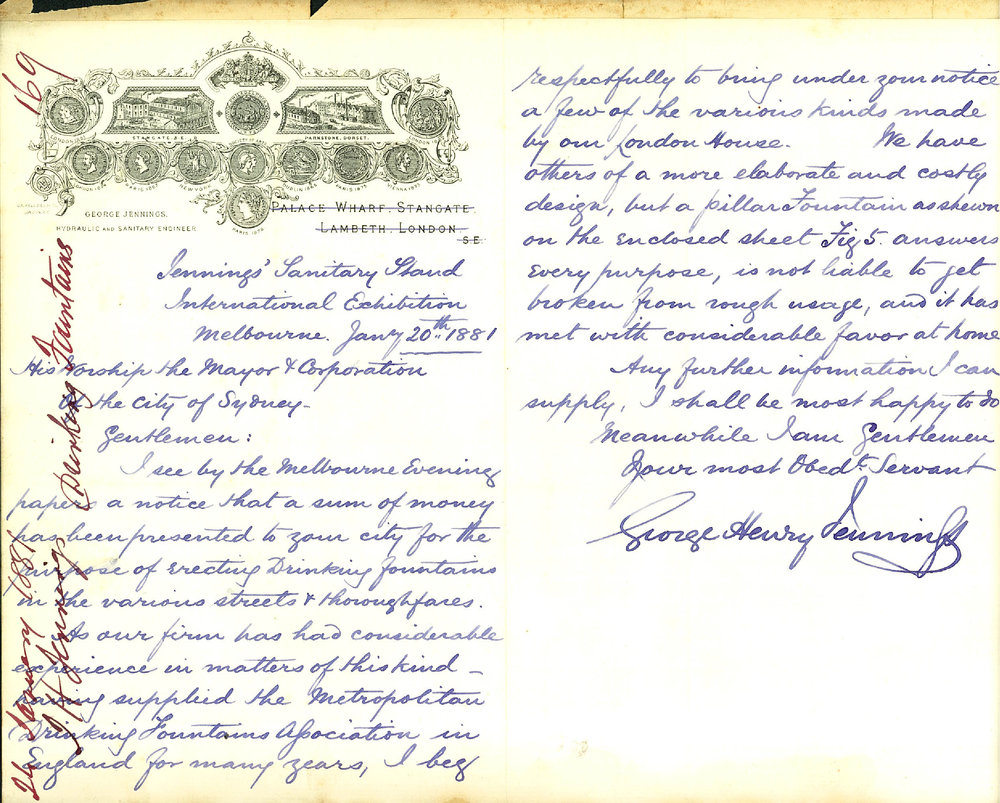 169
26 January 1881
G H Jennings Drinking Fountains
STANGATE S.E.
PARKSTONE, DORSET.
PARIS 1867
NEW YORK
DUBLIN 1865
PARIS 1875
VIENNA 1873
PARIS 1878
GEORGE JENNINGS.
HYDRAULIC AND SANITARY ENGINEER
PALACE WHARF. STANGATE
LAMBETH. LONDON
S.E.
Jennings' Sanitary Stand
International Exhibition
Melbourne. Jany 20th. 1881
His Worship the Mayor & Corporation
of the City of Sydney -
Gentlemen:
I see by the Melbourne Evening
papers a notice that a sum of money
has been presented to your city for the
purpose of erecting Drinking fountains
in the various streets & thoroughfares.
As our firm has had considerable
experience in matters of this kind -
having supplied the Metropolitan
Drinking Fountains Association in
England for many years, I beg
respectfully to bring under your notice
a few of the various kinds made
by our London House. We have
others of a more elaborate and costly
design, but a pillar Fountain as shewn
on the enclosed sheet Fig 5. answers
every purpose, is not liable to get
broken from rough usage, and it has
met with considerable favor at home
Any further information I can
supply, I shall be most happy to do
Meanwhile I am Gentlemen
Your most Obedt. Servant
George Henry Jennings